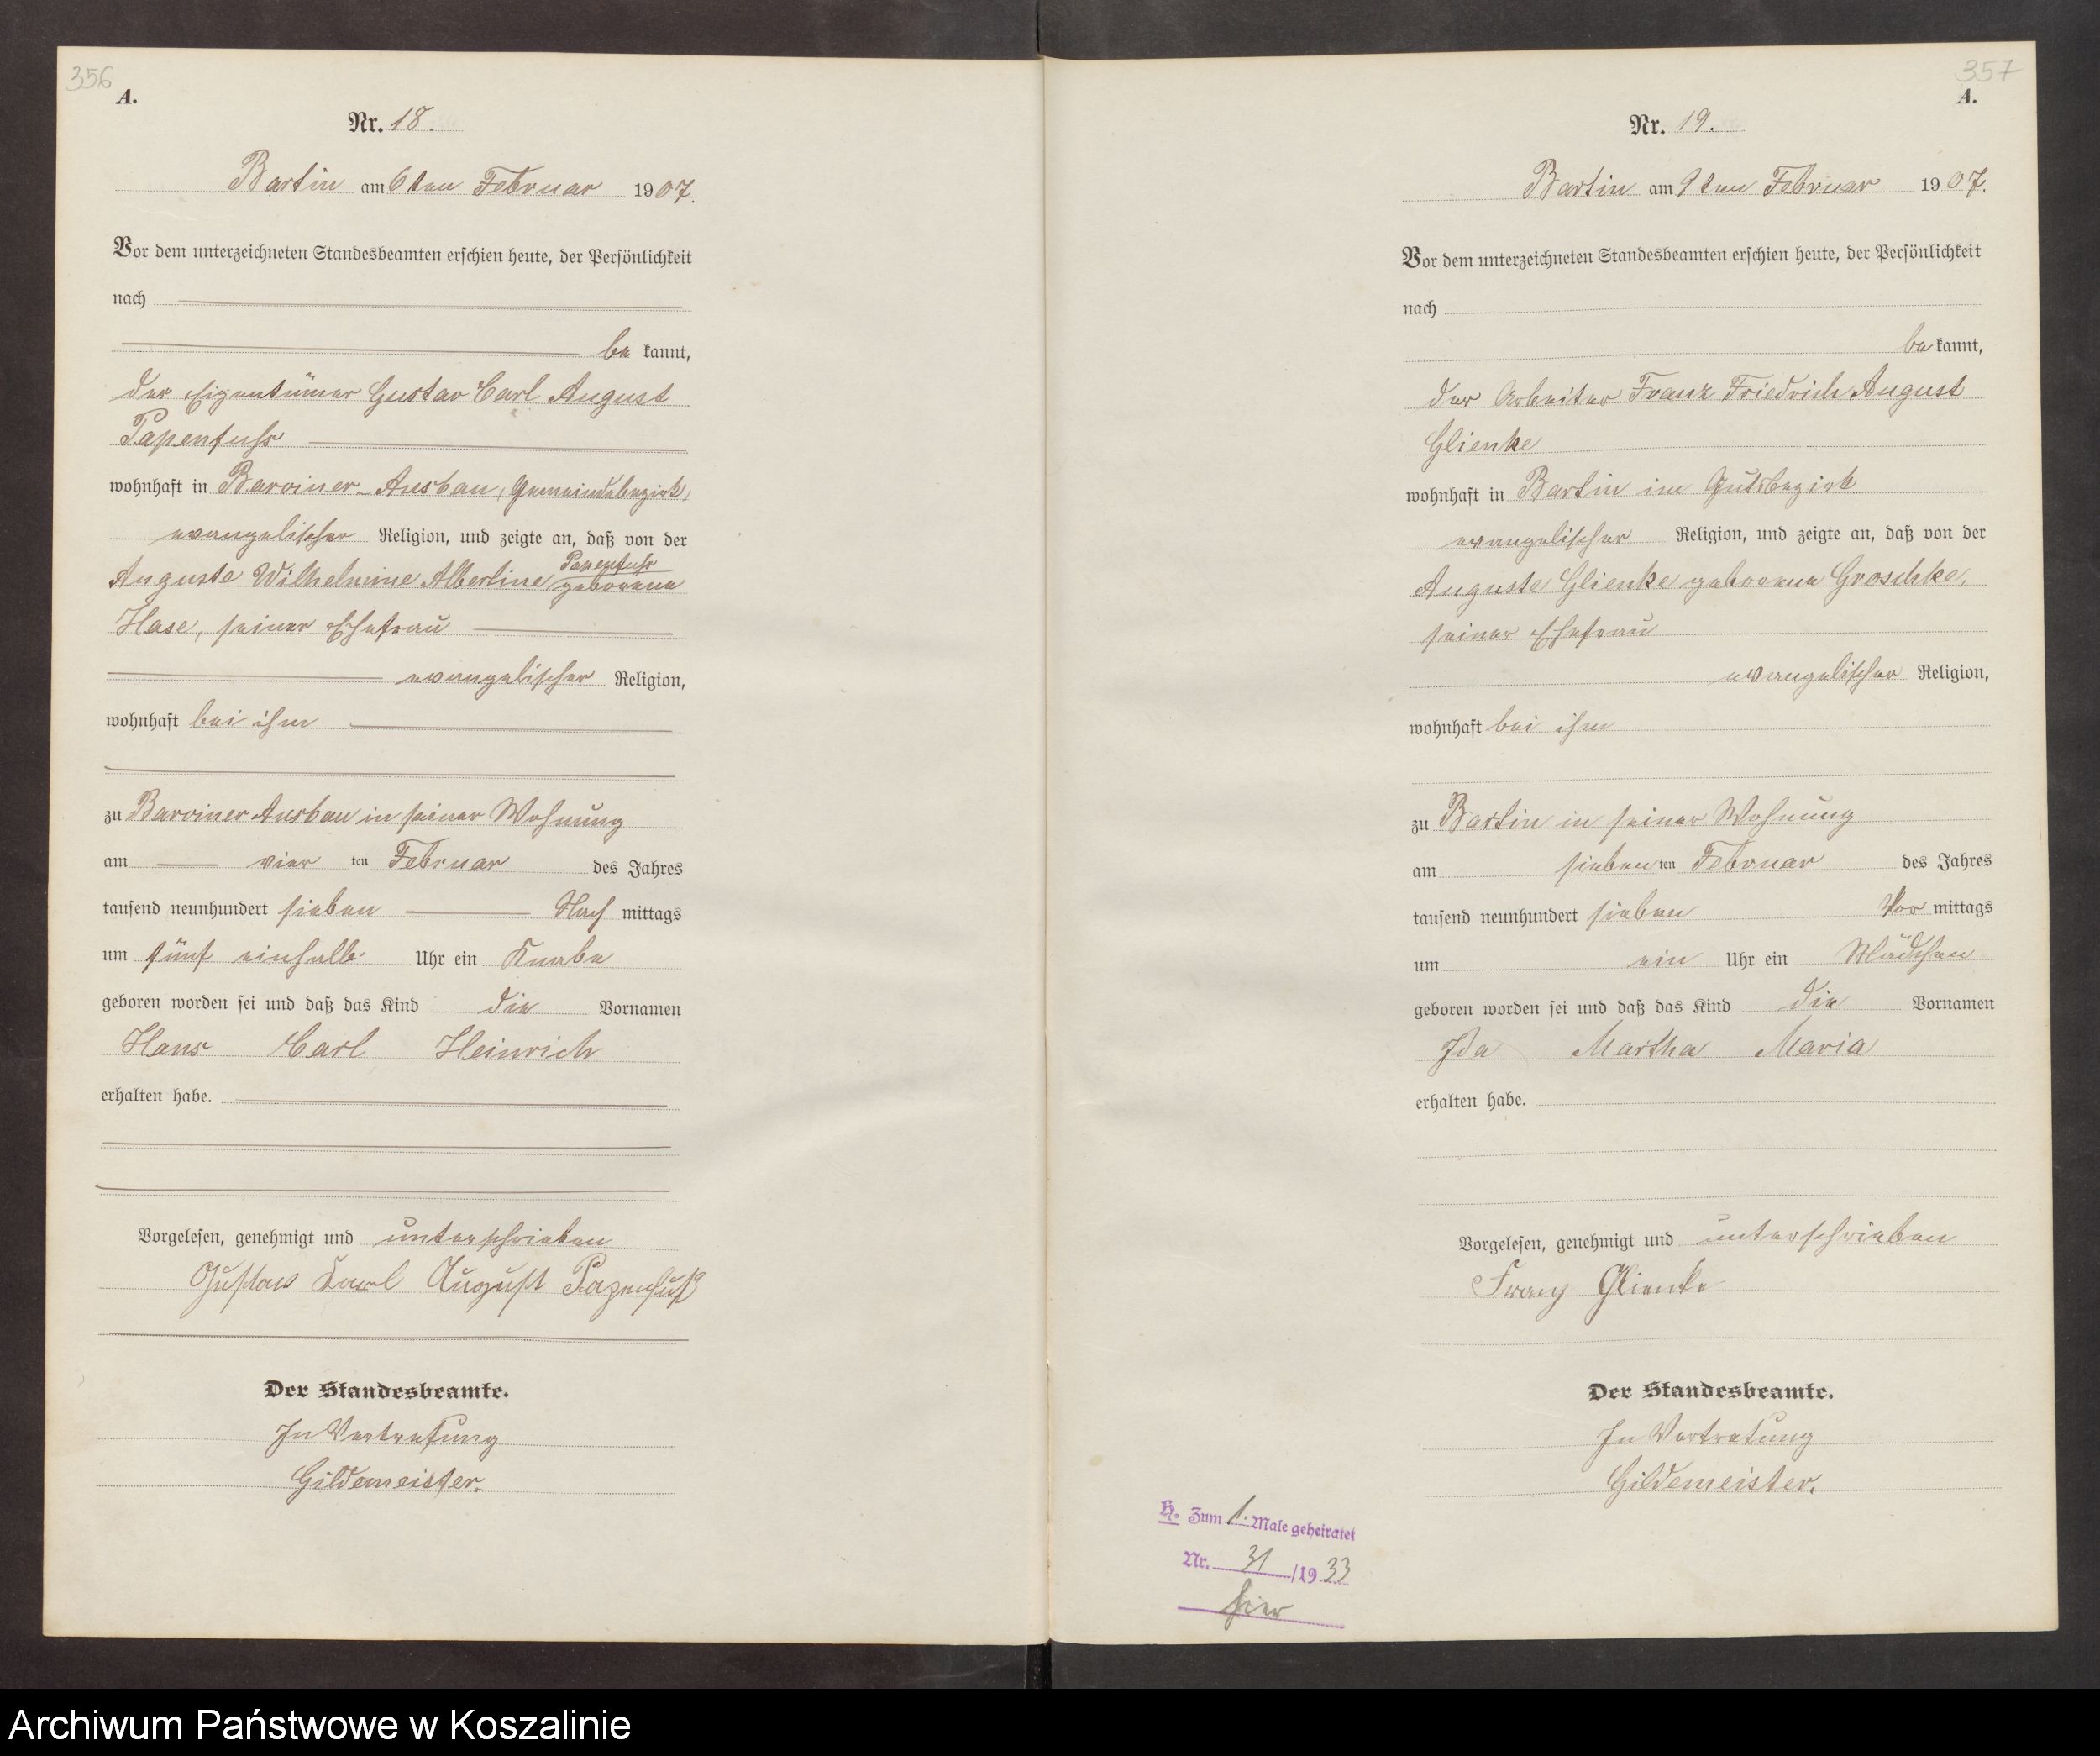 356
A.
Nr. 18.
Bartin am 6ten Februar 1907.
Vor dem unterzeichneten Standesbeamten erschien heute, der Persönlichkeit
nach
be kannt,
der Eigentümer Gustav Carl August
Papenfuss
wohnhaft in Barviner-Ausbau, Gemeindebezirk,
evangelischer Religion, und zeigte an, daß von der
Papenfuss
Auguste Wilhelmine Albertine geborene
Hase, seiner Ehefrau
evangelischer Religion,
wohnhaft bei ihm
zu Barviner Ausbau in seiner Wohnung
am vier ten Februar des Jahres
tausend neunhundert sieben Nach mittags
um fünf einhalb Uhr ein Knabe
geboren worden sei und daß das Kind die Vornamen
Hans Carl Heinrich
erhalten habe.
Vorgelesen, genehmigt und unterschrieben
Gustav Karl August Papenfuß
Der Standesbeamte.
In Vertretung
Gildemeister.
357
A.
Nr. 19.
Bartin am 9ten Februar 1907.
Vor dem unterzeichneten Standesbeamten erschien heute, der Persönlichkeit
nach
be kannt,
der Arbeiter Franz Friedrich August
Glienke
wohnhaft in Bartin im Gutsbezirk
evangelischer Religion, und zeigte an, daß von der
Auguste Glienke geborene Groschke,
seiner Ehefrau
evangelischer Religion,
wohnhaft bei ihm
zu Bartin in seiner Wohnung
am sieben ten Februar des Jahres
tausend neunhundert sieben Vor mittags
um ein Uhr ein Mädchen
geboren worden sei und daß das Kind die Vornamen
Ida Martha Maria
erhalten habe.
Vorgelesen, genehmigt und unterschrieben
Franz Glienke
Der Standesbeamte.
In Vertretung
Gildemeister.
H. Zum 1. Male geheiratet
Nr. 31 /19 33
hier
Archiwum Państwowe w Koszalinie